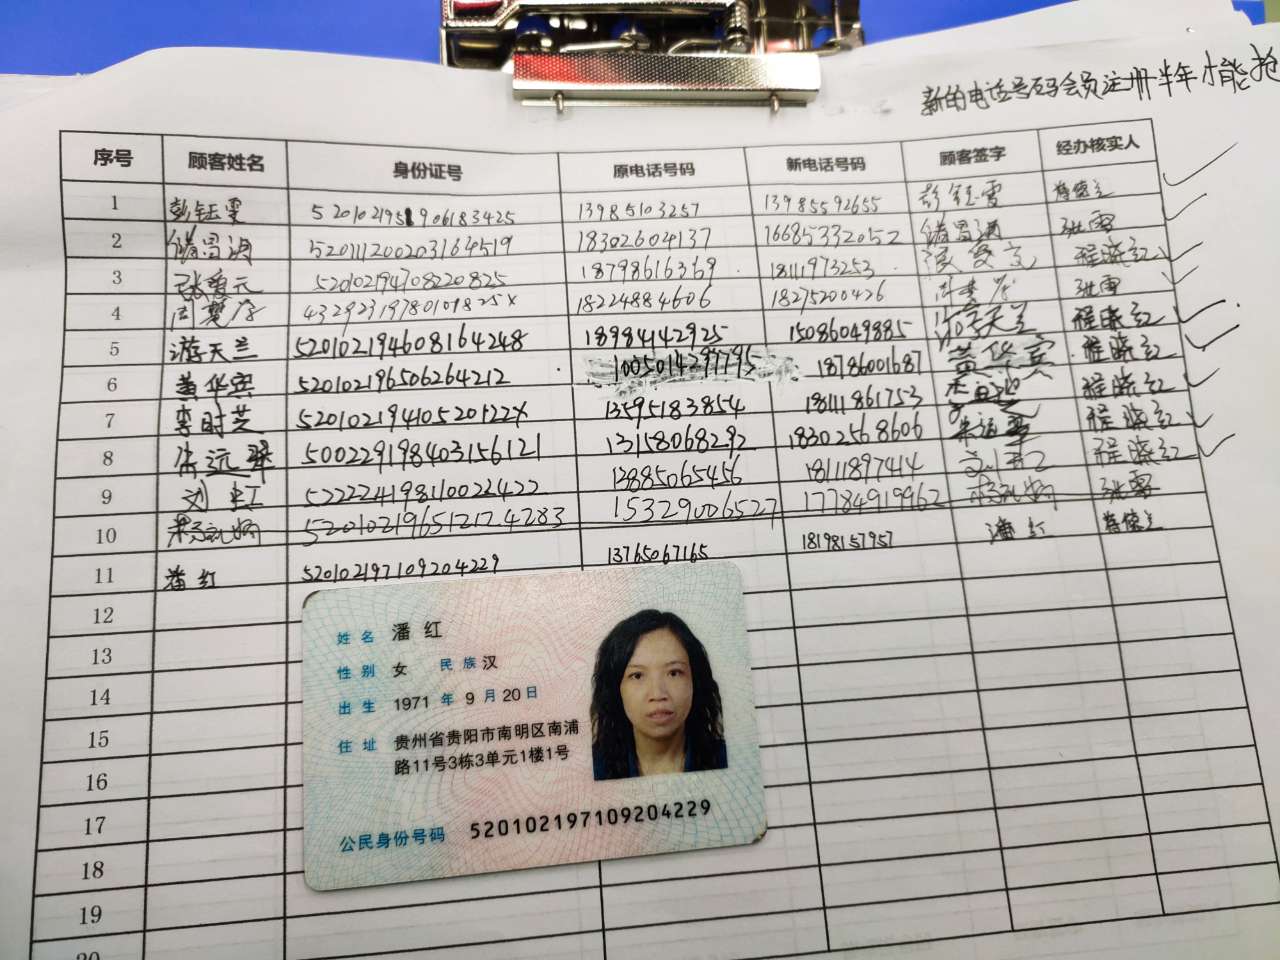 新的电话号码会员注册半年才能抢
序号 顾客姓名 身份证号 原电话号码 新电话号码 顾客签字 经办核实人
1 彭钰雯 5201021951906183425 13985103257 13985592655 彭钰雯
2 520111200203164519 18302604137 16685332052 张雷
3 520102194708220825 18798616369 18111973253 程晓红
4 43292319780101825X 18224884606 18275200426 张雷
5 游天兰 520102194608164248 18984142925 15086049885 游天兰 程晓红
6 黄华宾 520102196506264212 18786001687 黄华宾 程晓红
7 李时芝 52010219410520122X 13595183854 18111861753 程晓红
8 朱远翠 500229198403156121 13158068292 18302568606 程晓红
9 刘虹 522224198110022422 13885065456 18111897414 程晓红
10 520102196512124283 15329006527 17784919962 张雷
11 潘红 520102197109204229 13765067165 18198157957 潘红
12
13
14
15
16
17
18
19
20
姓名 潘红
性别 女 民族 汉
出生 1971 年 9 月 20 日
住址 贵州省贵阳市南明区南浦
路11号3栋3单元1楼1号
公民身份号码 520102197109204229